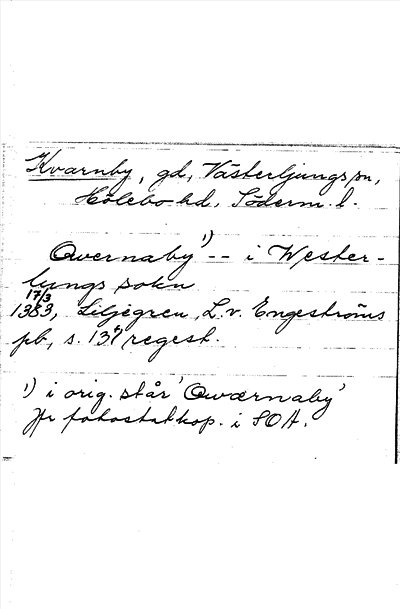 Kvarnby, gd, Västerljungs sn,
Hölebo hd, Söderm. l.
Qvernaby¹) -- i Wester-
ljungs sokn
17/3
1383, Liljegren, L. v. Engeströms
pb, s. 137 regest.
¹) i orig. står 'Qwærnaby'
Jfr fotostatkop. i SOA.